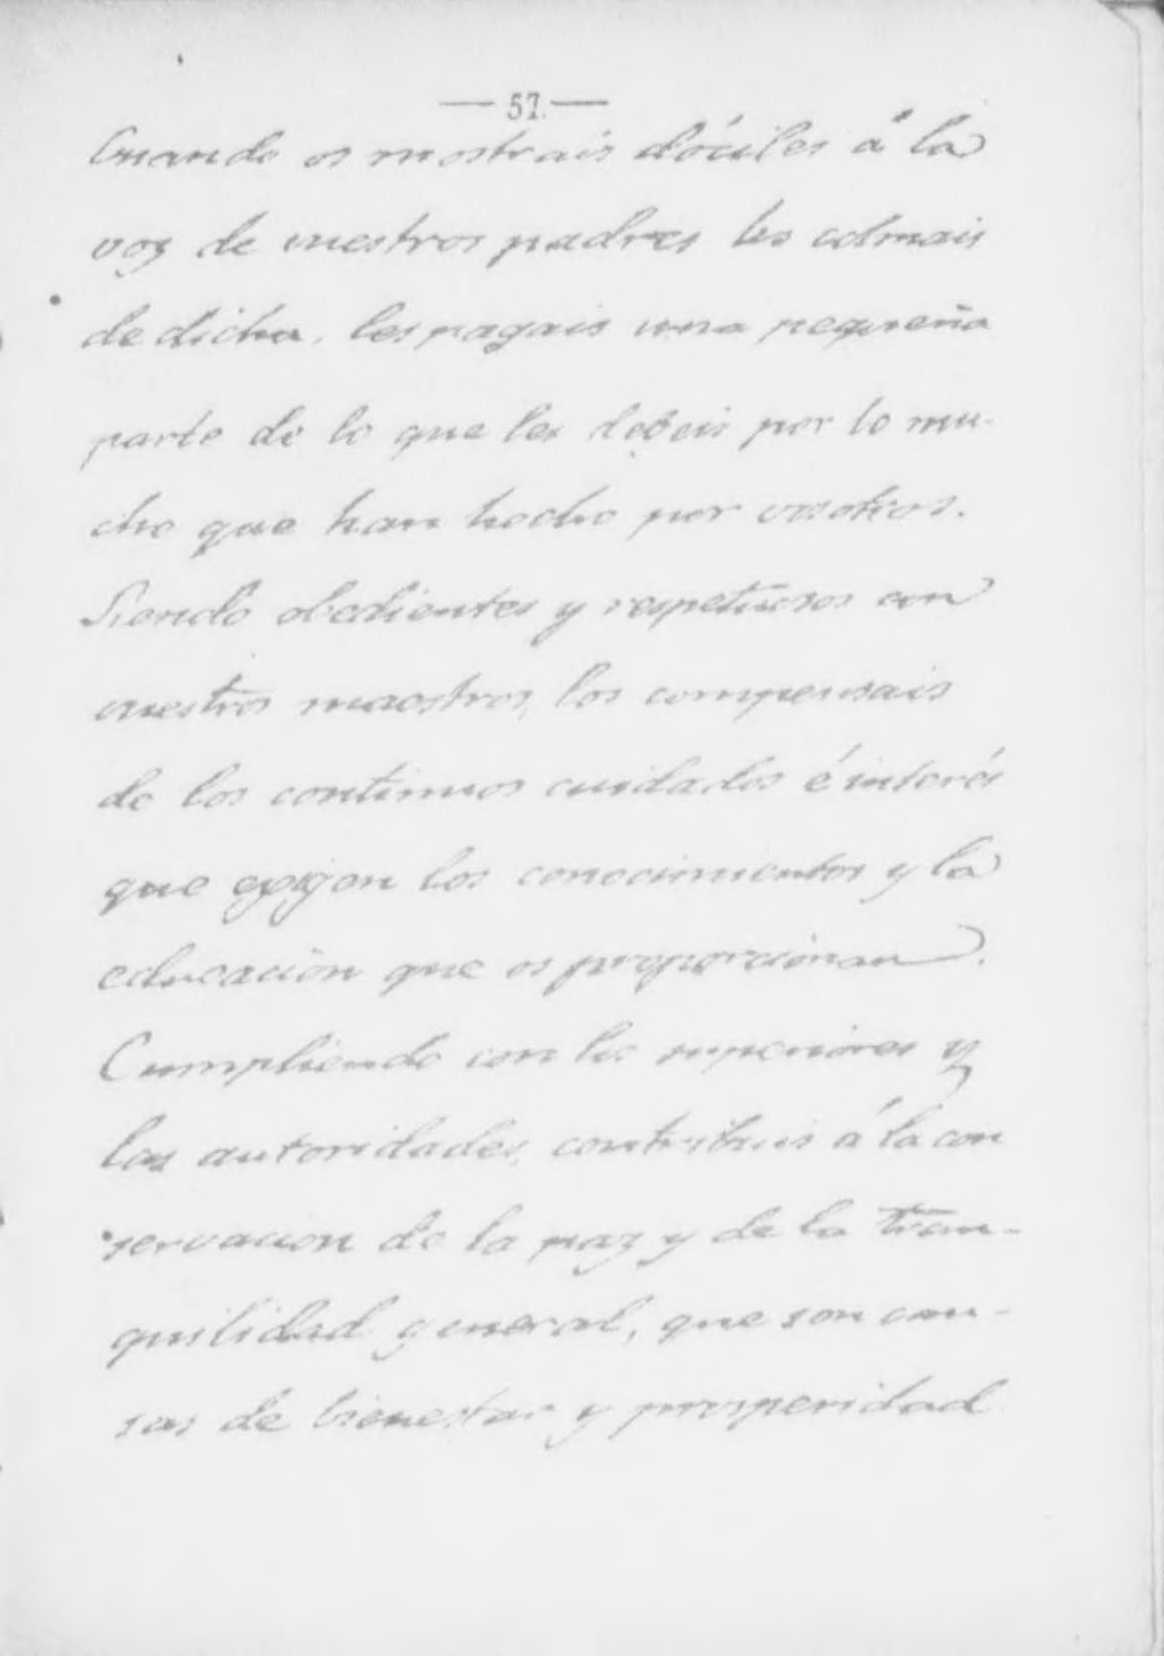 — 57. —
Cuando os mostrais dóciles á la
voz de vuestros padres les colmais
de dicha, les pagais una pequeña
parte de lo que les debeis por lo mu-
cho que han hecho por vosotros.
Siendo obedientes y respetuosos con
vuestros maestros, los compensais
de los continuos cuidados é interés
que exigen los conocimientos y la
educación que os proporcionan.
Cumpliendo con los superiores y
las autoridades, contribuis á la con
servacion de la paz y de la tran-
quilidad general, que son cau-
sas de bienestar y prosperidad